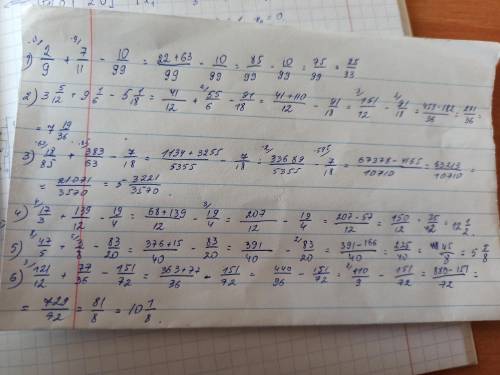 1) 2/9 + 7/11 - 10/99 = 22+63/99 - 10/99 = 85/99 - 10/99 = 75/99 = 25/33
2) 3 5/12 + 9 1/6 - 5 1/18 = 41/12 + 55/6 - 91/18 = 41+110/12 - 91/18 = 151/12 - 91/18 = 453-182/36 = 271/36 =
= 7 19/36
3) 18/85 + 383/63 - 7/18 = 1134+3255/5355 - 7/18 = 33689/5355 - 7/18 = 67378-4165/10710 = 63213/10710 =
= 21071/3570 = 5 3221/3570.
4) 17/3 + 139/12 - 19/4 = 68+139/12 - 19/4 = 207/12 - 19/4 = 207-57/12 = 150/12 = 25/2 = 12 1/2
5) 47/5 + 3/8 - 83/20 = 376+15/40 - 83/20 = 391/40 - 83/20 = 391-166/40 = 225/40 = 45/8 = 5 5/8
6) 121/12 + 77/36 - 151/72 = 363+77/36 - 151/72 = 440/36 - 151/72 = 110/9 - 151/72 = 880-151/72 =
= 729/72 = 81/8 = 10 1/8.